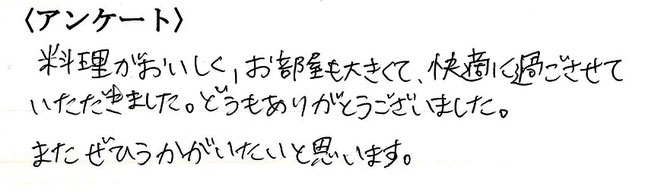 〈アンケート〉
料理がおいしく、お部屋も大きくて、快適に過ごさせて
いただきました。どうもありがとうございました。
またぜひうかがいたいと思います。